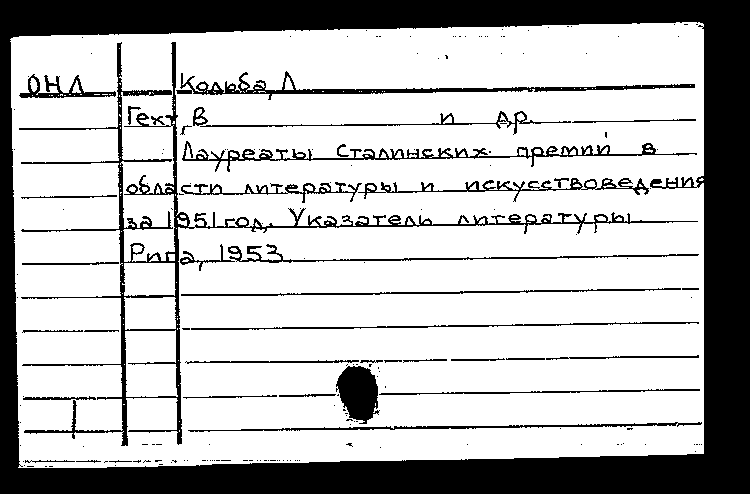 ОНЛ Кольба, Л
Гехт, В и др.
Лауреаты Сталинских премий в
области литературы и искусствоведения
за 1951 год. Указатель литературы.
Рига, 1953.